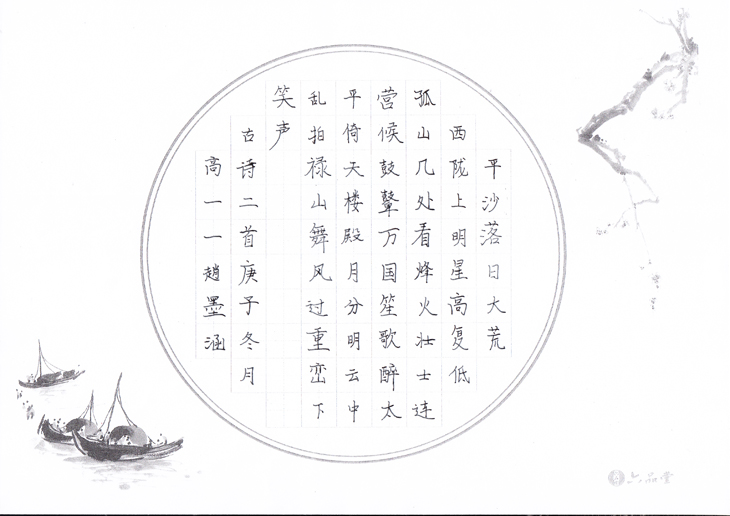 平沙落日大荒
西陇上明星高复低
孤山几处看烽火壮士连
营候鼓鼙万国笙歌醉太
平倚天楼殿月分明云中
乱拍禄山舞风过重峦下
笑声
古诗二首庚子冬月
高一一赵墨涵
六品堂